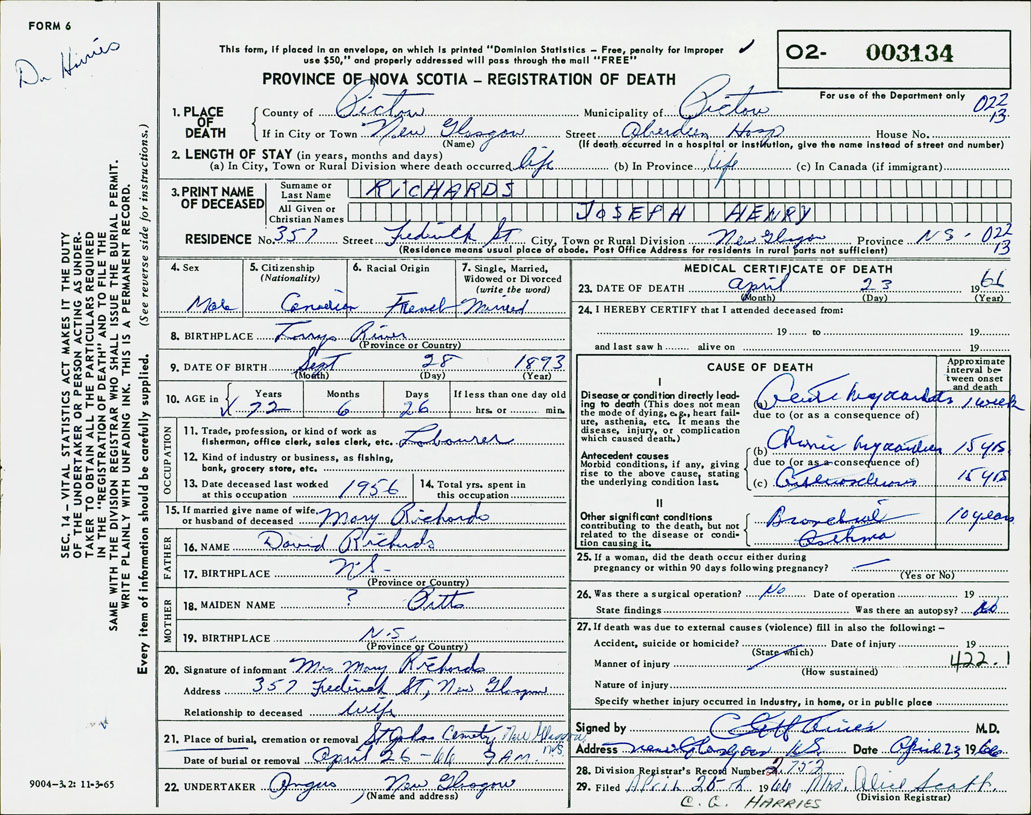 FORM 6
Dr Harries
This form, if placed in an envelope, on which is printed "Dominion Statistics – Free, penalty for improper
use $50," and properly addressed will pass through the mail "FREE"
02- 003134
PROVINCE OF NOVA SCOTIA – REGISTRATION OF DEATH
For use of the Department only
022
13
1. PLACE OF DEATH
County of Pictou Municipality of Pictou
If in City or Town New Glasgow Street Aberdeen Hosp House No.
(Name) (If death occurred in a hospital or institution, give the name instead of street and number)
2. LENGTH OF STAY (in years, months and days)
(a) In City, Town or Rural Division where death occurred life (b) In Province life (c) In Canada (if immigrant)
3. PRINT NAME OF DECEASED
Surname or Last Name RICHARDS
All Given or Christian Names JOSEPH HENRY
RESIDENCE No. 357 Street Frederick St City, Town or Rural Division New Glasgow Province N.S. 022
13
(Residence means usual place of abode. Post Office Address for residents in rural parts not sufficient)
4. Sex
Male
5. Citizenship (Nationality)
Canadian
6. Racial Origin
French
7. Single, Married, Widowed or Divorced (write the word)
Married
8. BIRTHPLACE River
(Province or Country)
9. DATE OF BIRTH Sept 28 1893
(Month) (Day) (Year)
10. AGE in Years Months Days If less than one day old
72 6 26 hrs. or min.
OCCUPATION
11. Trade, profession, or kind of work as
fisherman, office clerk, sales clerk, etc. Labourer
12. Kind of industry or business, as fishing,
bank, grocery store, etc.
13. Date deceased last worked
at this occupation 1956
14. Total yrs. spent in
this occupation
15. If married give name of wife,
or husband of deceased Mary Richards
FATHER
16. NAME David Richards
17. BIRTHPLACE N.S.
(Province or Country)
MOTHER
18. MAIDEN NAME ? Pitts
19. BIRTHPLACE N.S.
(Province or Country)
20. Signature of informant Mrs Mary Richards
Address 357 Frederick St, New Glasgow
Relationship to deceased wife
21. Place of burial, cremation or removal St Johns Cemetry New Glasgow
N.S.
Date of burial or removal April 26 – 66 9 A.M.
22. UNDERTAKER Angus New Glasgow
(Name and address)
MEDICAL CERTIFICATE OF DEATH
23. DATE OF DEATH April 23 1966
(Month) (Day) (Year)
24. I HEREBY CERTIFY that I attended deceased from:
19 to 19
and last saw h alive on 19
CAUSE OF DEATH
Approximate interval between onset and death
I
Disease or condition directly leading to death (This does not mean
the mode of dying, e.g., heart failure, asthenia, etc. It means the
disease, injury, or complication
which caused death.)
(a) Acute myocarditis 1 week
due to (or as a consequence of)
Antecedent causes
Morbid conditions, if any, giving
rise to the above cause, stating
the underlying condition last.
(b) Chronic 15 yrs
due to (or as a consequence of)
(c) 15 yrs
II
Other significant conditions
contributing to the death, but not
related to the disease or condition causing it.
Bronchial 10 years
Asthma
25. If a woman, did the death occur either during
pregnancy or within 90 days following pregnancy? —
(Yes or No)
26. Was there a surgical operation? No Date of operation 19
State findings Was there an autopsy? No
27. If death was due to external causes (violence) fill in also the following: –
Accident, suicide or homicide? Date of injury 19
(State which)
Manner of injury 422.1
(How sustained)
Nature of injury
Specify whether injury occurred in industry, in home, or in public place
Signed by M.D.
Address New Glasgow N.S. Date April 23 1966
28. Division Registrar's Record Number 2752
29. Filed April 25th 1966 Mrs. Alice Scott
(Division Registrar)
C. G. HARRIES
SEC. 14 – VITAL STATISTICS ACT MAKES IT THE DUTY
OF THE UNDERTAKER OR PERSON ACTING AS UNDER-
TAKER TO OBTAIN ALL THE PARTICULARS REQUIRED
IN THE "REGISTRATION OF DEATH" AND TO FILE THE
SAME WITH THE DIVISION REGISTRAR WHO SHALL ISSUE THE BURIAL PERMIT.
WRITE PLAINLY WITH UNFADING INK. THIS IS A PERMANENT RECORD.
Every item of information should be carefully supplied. (See reverse side for instructions.)
9004–3.2: 11-3-65